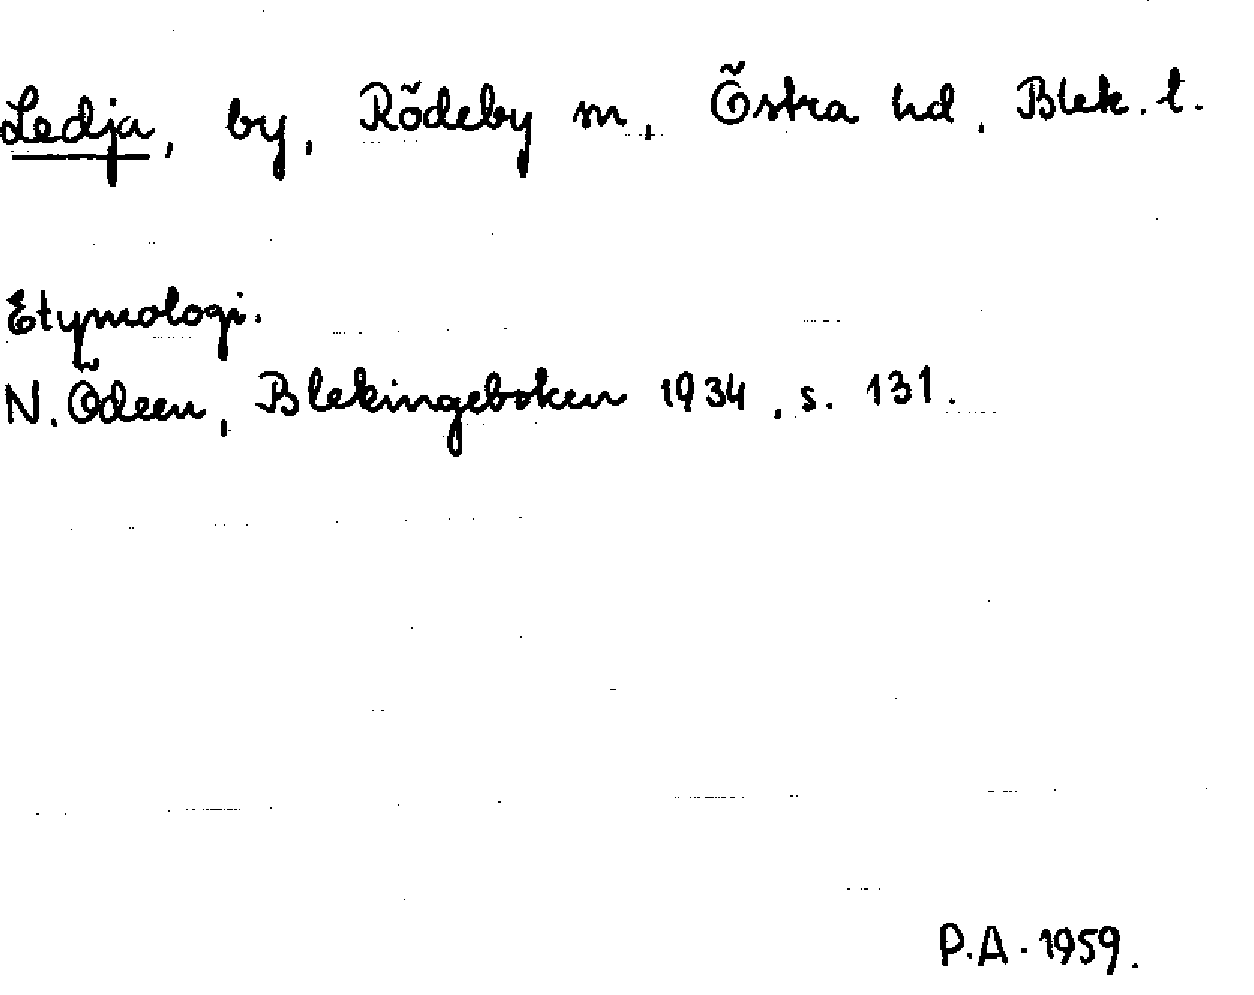 Ledja, by, Rödeby sn, Östra hd, Blek. l.
Etymologi.
N. Ödeen, Blekingeboken 1934, s. 131.
P.A. 1959.